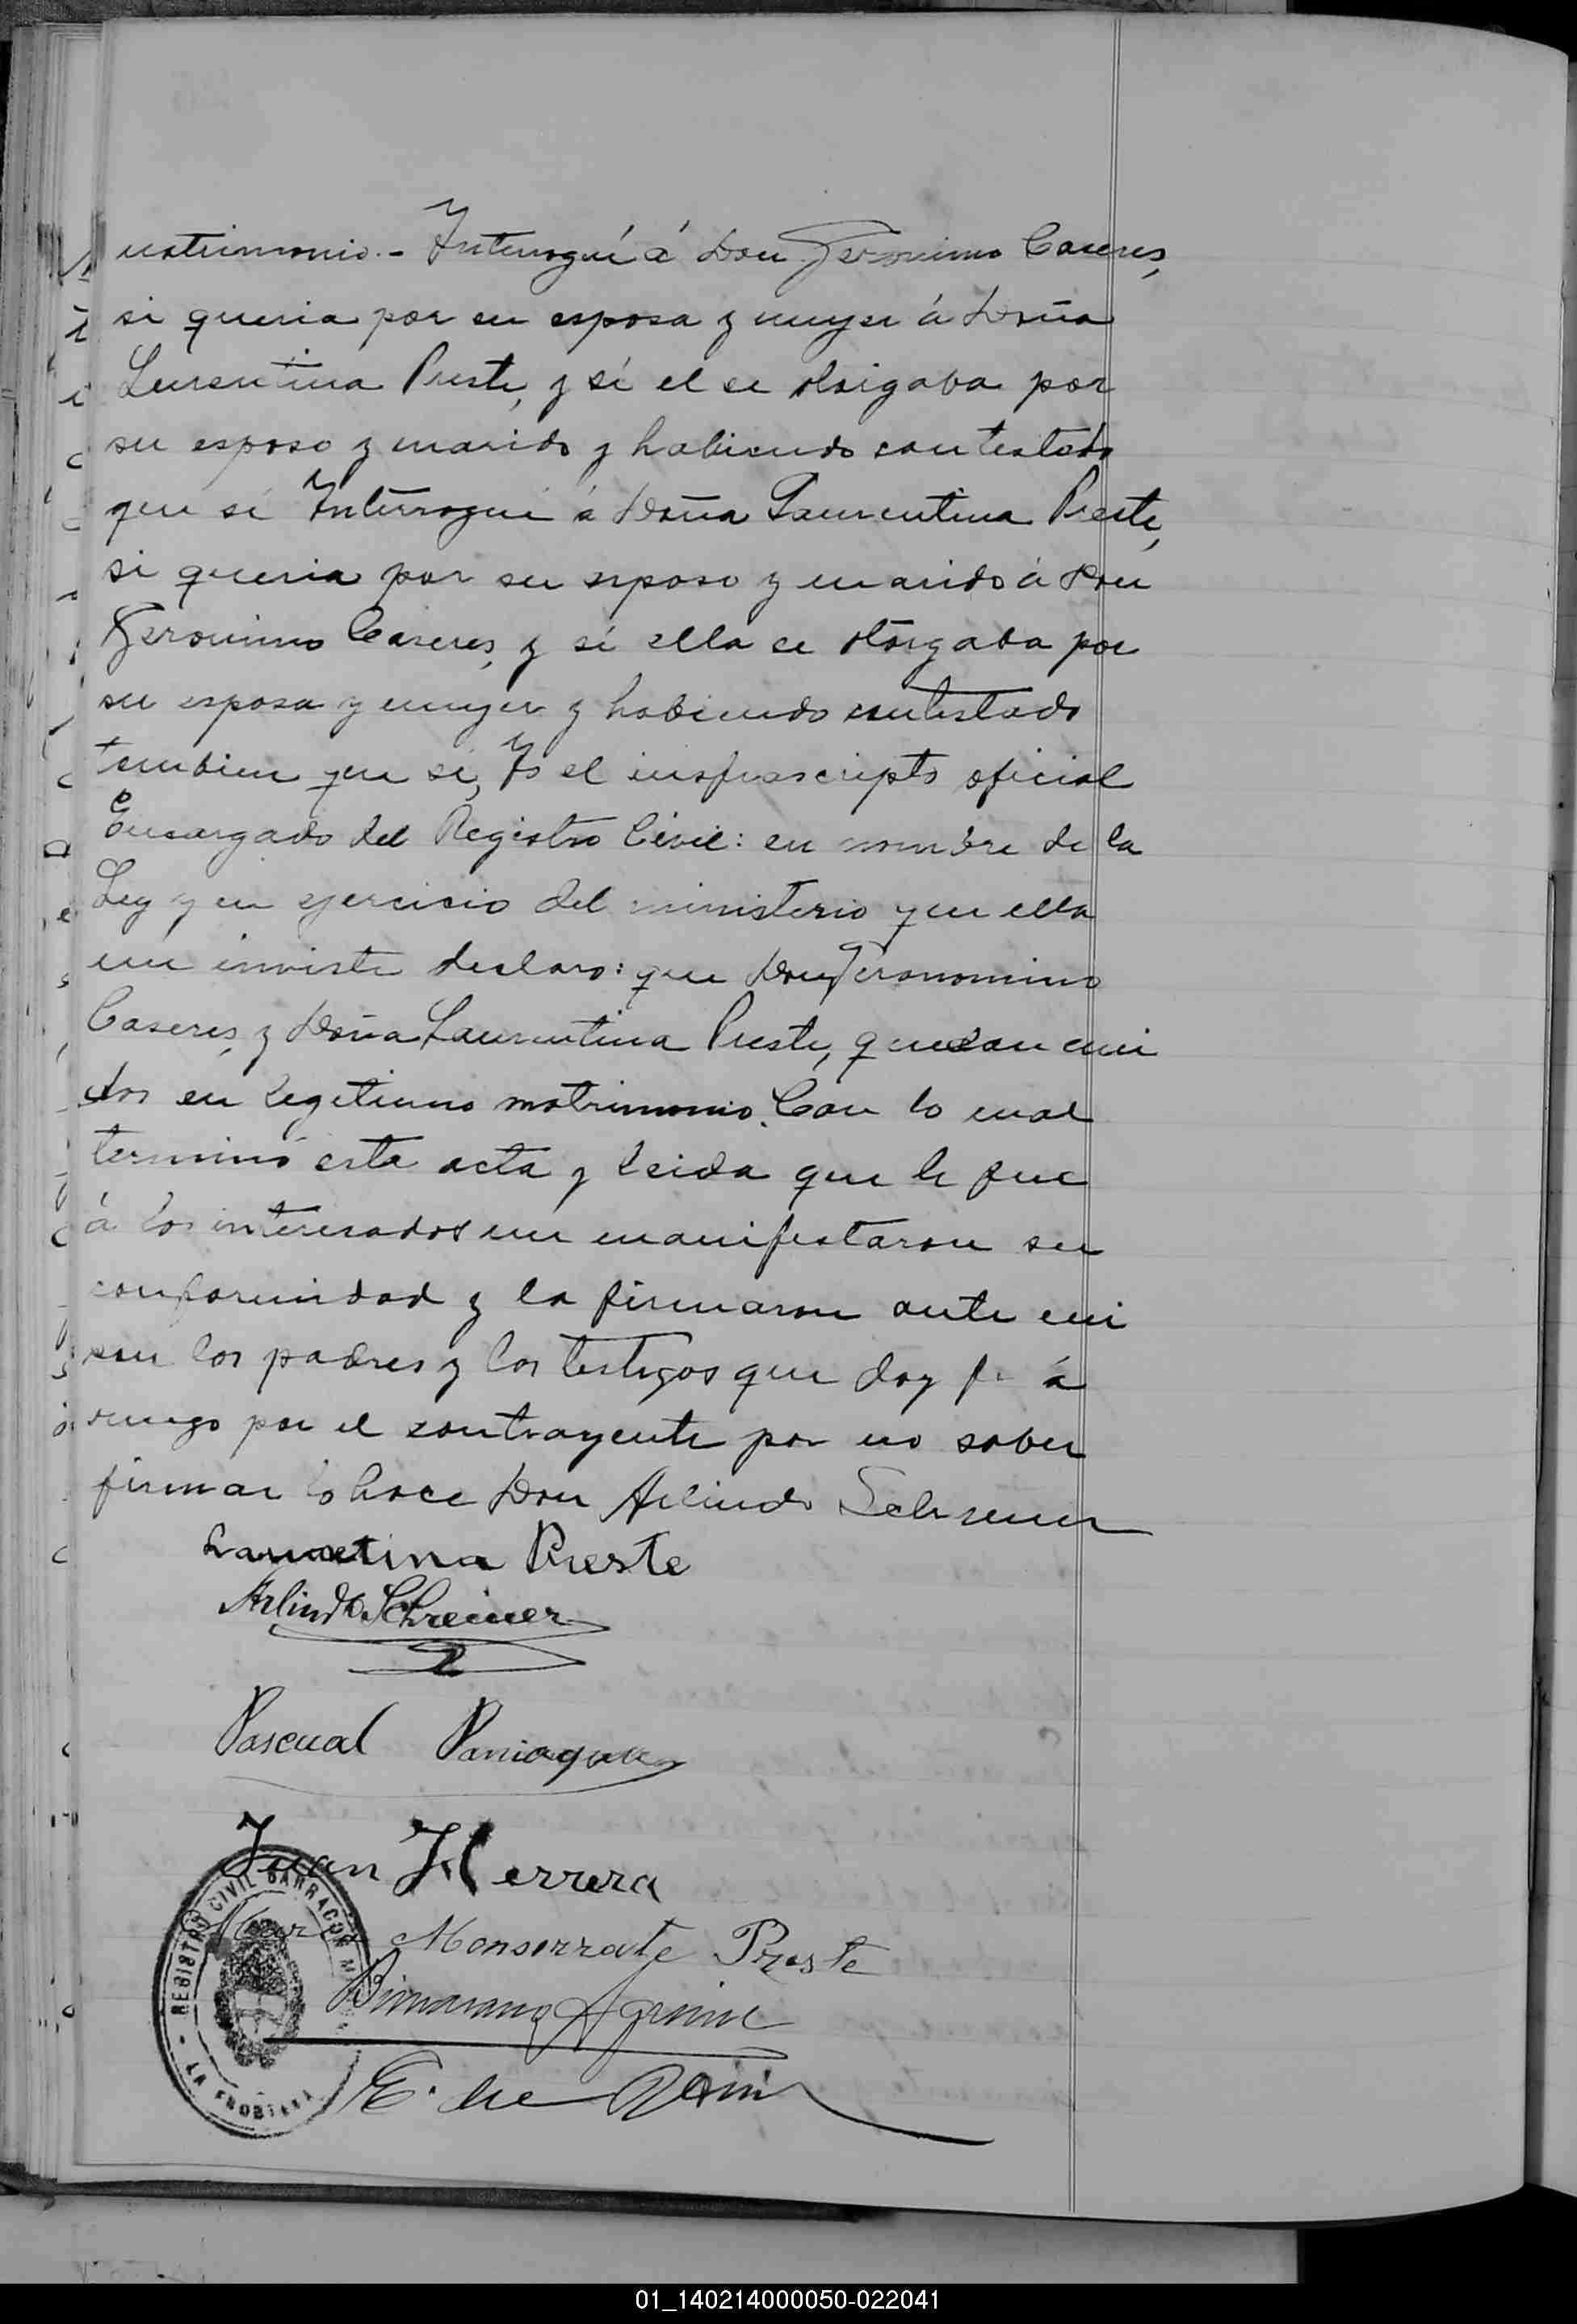 matrimonio.- Interrogué á Don Jeronimo Caseres,
si queria por su esposa y mujer á Doña
Laurentina Preste, y sí el se otorgaba por
su esposo y marido y habiendo contestado
que sí Interrogué á Doña Laurentina Preste,
si queria por su esposo y marido á Don
Jeronimo Caseres, y sí ella se otorgaba por
su esposa y mujer y habiendo contestado
tambien que sí, Yo el insfrascripto oficial
Encargado del Registro Civil: en nombre de la
Ley y en ejercicio del ministerio que ella
me inviste declaro: que Don Jeronomino
Caseres, y Doña Laurentina Preste, quedan uni
dos en legitimo matrimonio. Con lo cual
terminó esta acta y leida que le fue
á los interesados me manifestaron su
conformidad y la firmaron ante mi
con los padres y los testigos que doy fe á
ruego por el contrayente por no saber
firmar lo hace Don Arlindo Schreiner
Laurentina Preste
Arlindo Schreiner
Pascual Paniagua
Juan Herrera
María Monserrate Preste
E. de
REGISTRO CIVIL BARRACON
01_140214000050-022041